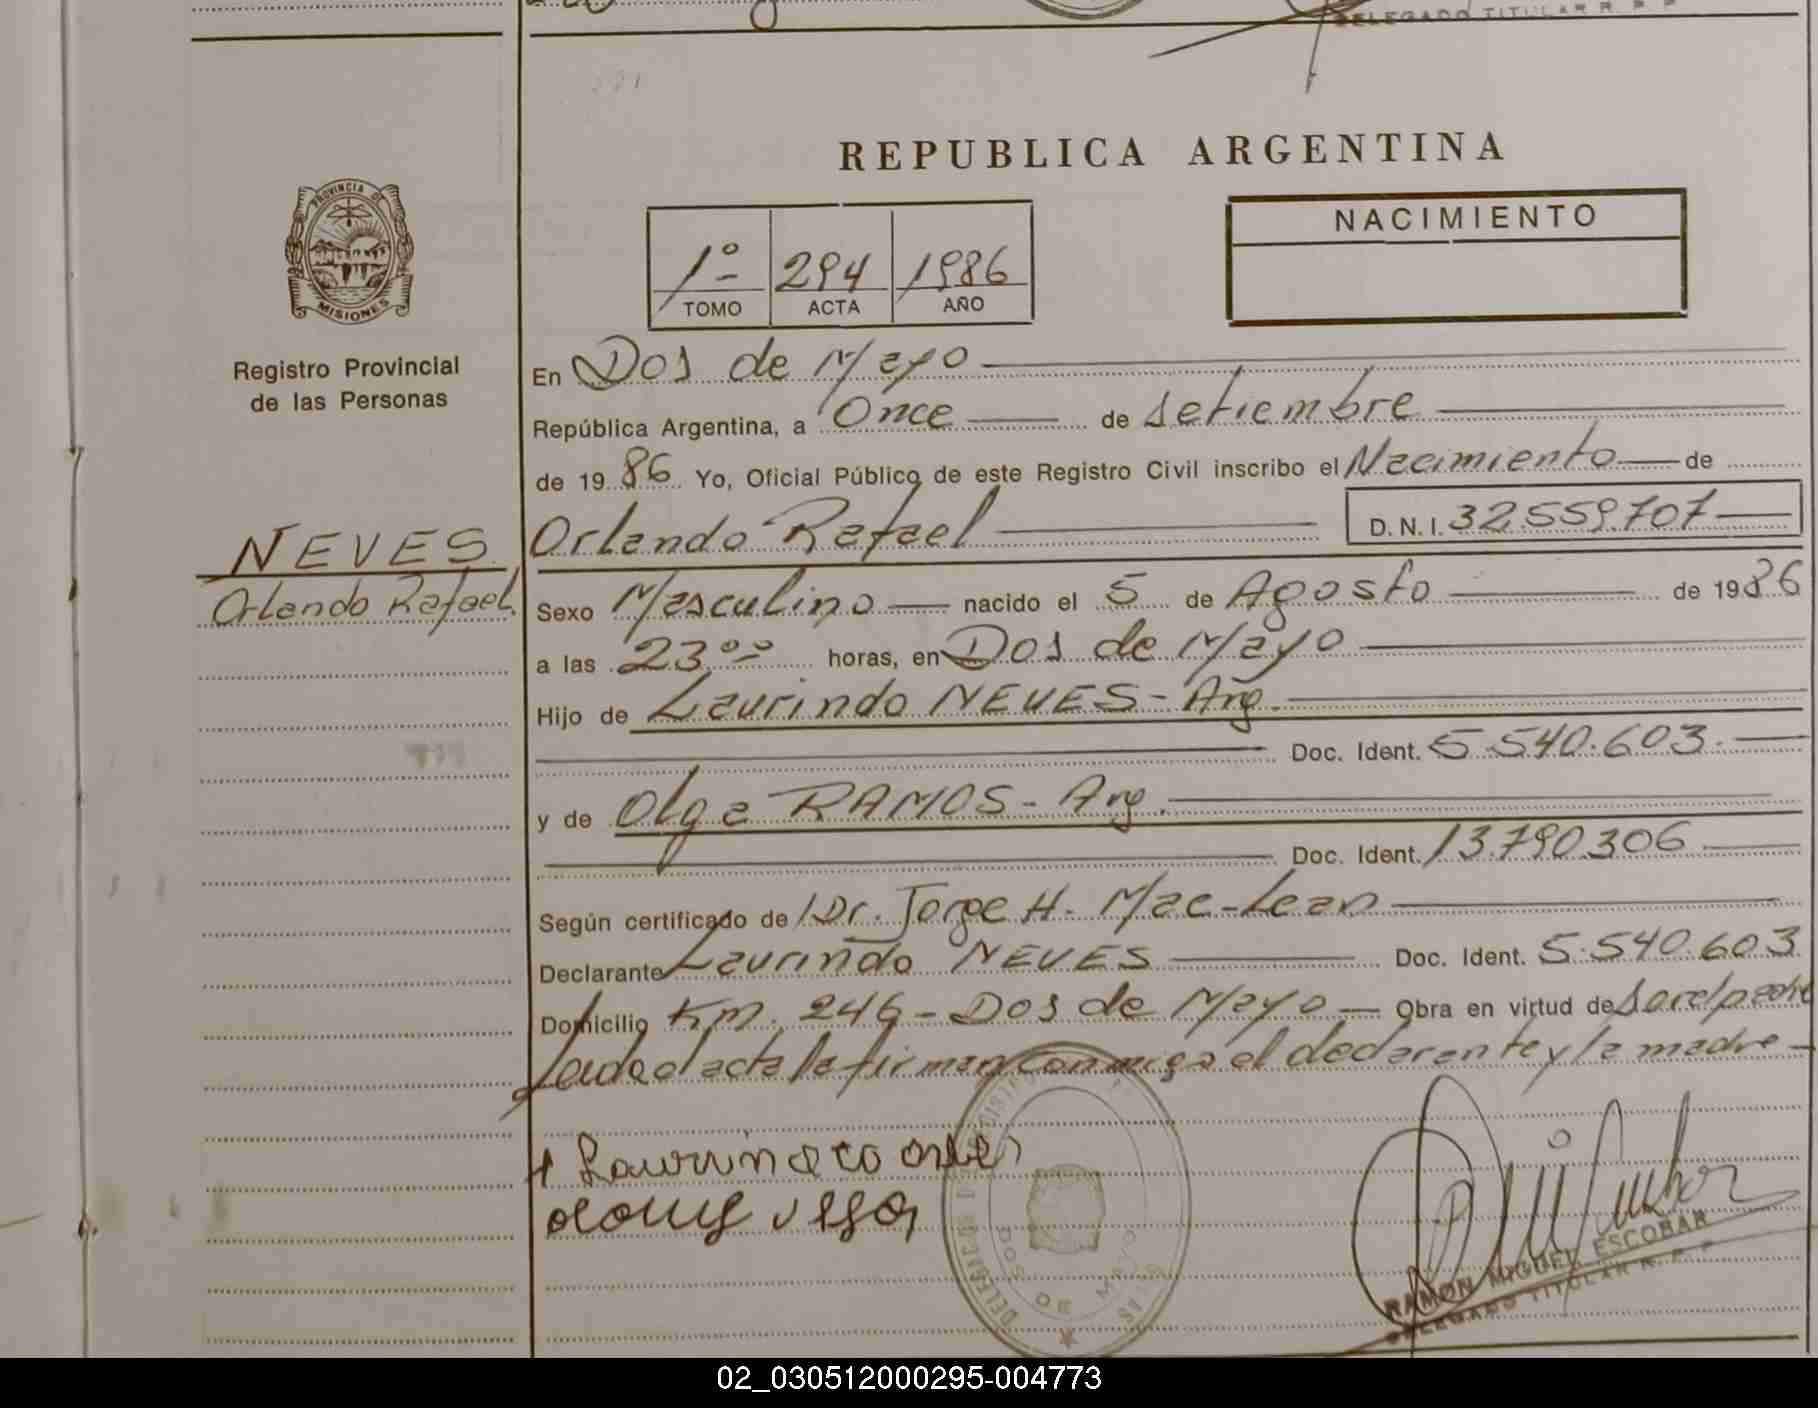 DELEGADO TITULAR R. P. P.
REPUBLICA ARGENTINA
PROVINCIA DE
MISIONES
NACIMIENTO
1º 294 1986
TOMO ACTA AÑO
Registro Provincial
de las Personas
En Dos de Mayo
República Argentina, a Once de Setiembre
de 1986 Yo, Oficial Público de este Registro Civil inscribo el Nacimiento de
NEVES
Orlando Rafael
Orlando Rafael D.N.I. 32.559.707
Sexo Masculino nacido el 5 de Agosto de 1986
a las 23 ºº horas, en Dos de Mayo
Hijo de Laurindo NEVES - Arg.
Doc. Ident. 5.540.603.
y de Olga RAMOS - Arg.
Doc. Ident. 13.790.306
Según certificado de Dr. Jorge H. Mac-Lean
Declarante Laurindo NEVES Doc. Ident. 5.540.603
Domicilio Km. 246 - Dos de Mayo Obra en virtud de
el acta la firman conmigo el declarante y la madre
DOS DE MAYO
RAMON MIGUEL ESCOBAR
DELEGADO TITULAR R. P. P.
02_030512000295-004773